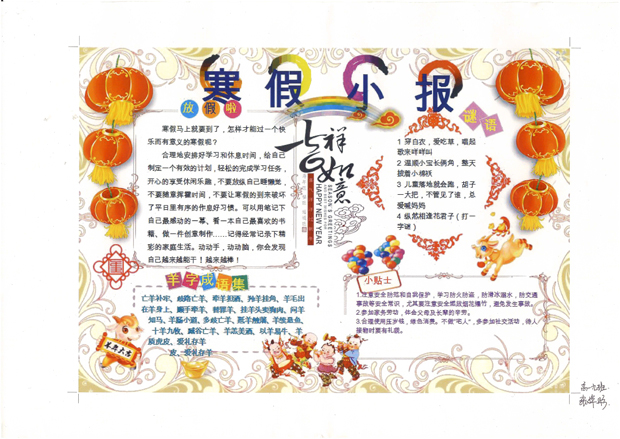 寒假小报
放假啦
寒假马上就要到了，怎样才能过一个快
乐而有意义的寒假呢？
合理地安排好学习和休息时间，给自己
制定一个有效的计划，轻松的完成学习任务，
开心的享受休闲乐趣，不要放纵自己睡懒觉，
不要随意挥霍时间，不要让寒假的到来破坏
了平日里有序的作息好习惯。可以用笔记下
自己最感动的一幕、看一本自己最喜欢的书
籍、做一件创意制作……记得经常记录下精
彩的家庭生活。动动手，动动脑，你会发现
自己越来越能干！越来越棒！
吉祥
如意
SEASON'S GREETINGS
HAPPY NEW YEAR
谜语
1 穿白衣，爱吃草，唱起
歌来咩咩叫
2 温顺小宝长俩角，整天
披着小棉袄
3 儿童落地就会跑，胡子
一大把，不管见了谁，总
爱喊妈妈
4 纵然相逢花君子（打一
字谜）
羊字成语集
亡羊补牢、歧路亡羊、牵羊担酒、羚羊挂角、羊毛出
在羊身上、顺手牵羊、替罪羊、挂羊头卖狗肉、问羊
知马、羊肠小道、多歧亡羊、羝羊触藩、羊续悬鱼、
十羊九牧、臧谷亡羊、羊羔美酒、以羊易牛、羊
质虎皮、爱礼存羊
皮、爱礼存羊
羊年大吉
小贴士
1.注意安全防范和自我保护，学习防火防盗，防滑冰溺水，防交通
事故等安全常识，尤其要注意安全燃放烟花爆竹，避免发生事故。
2.参加家务劳动，体会父母及长辈的辛劳。
3.合理使用压岁钱，绿色消费。不做"宅人"，多参加社交活动，待人
接物时要有礼貌。